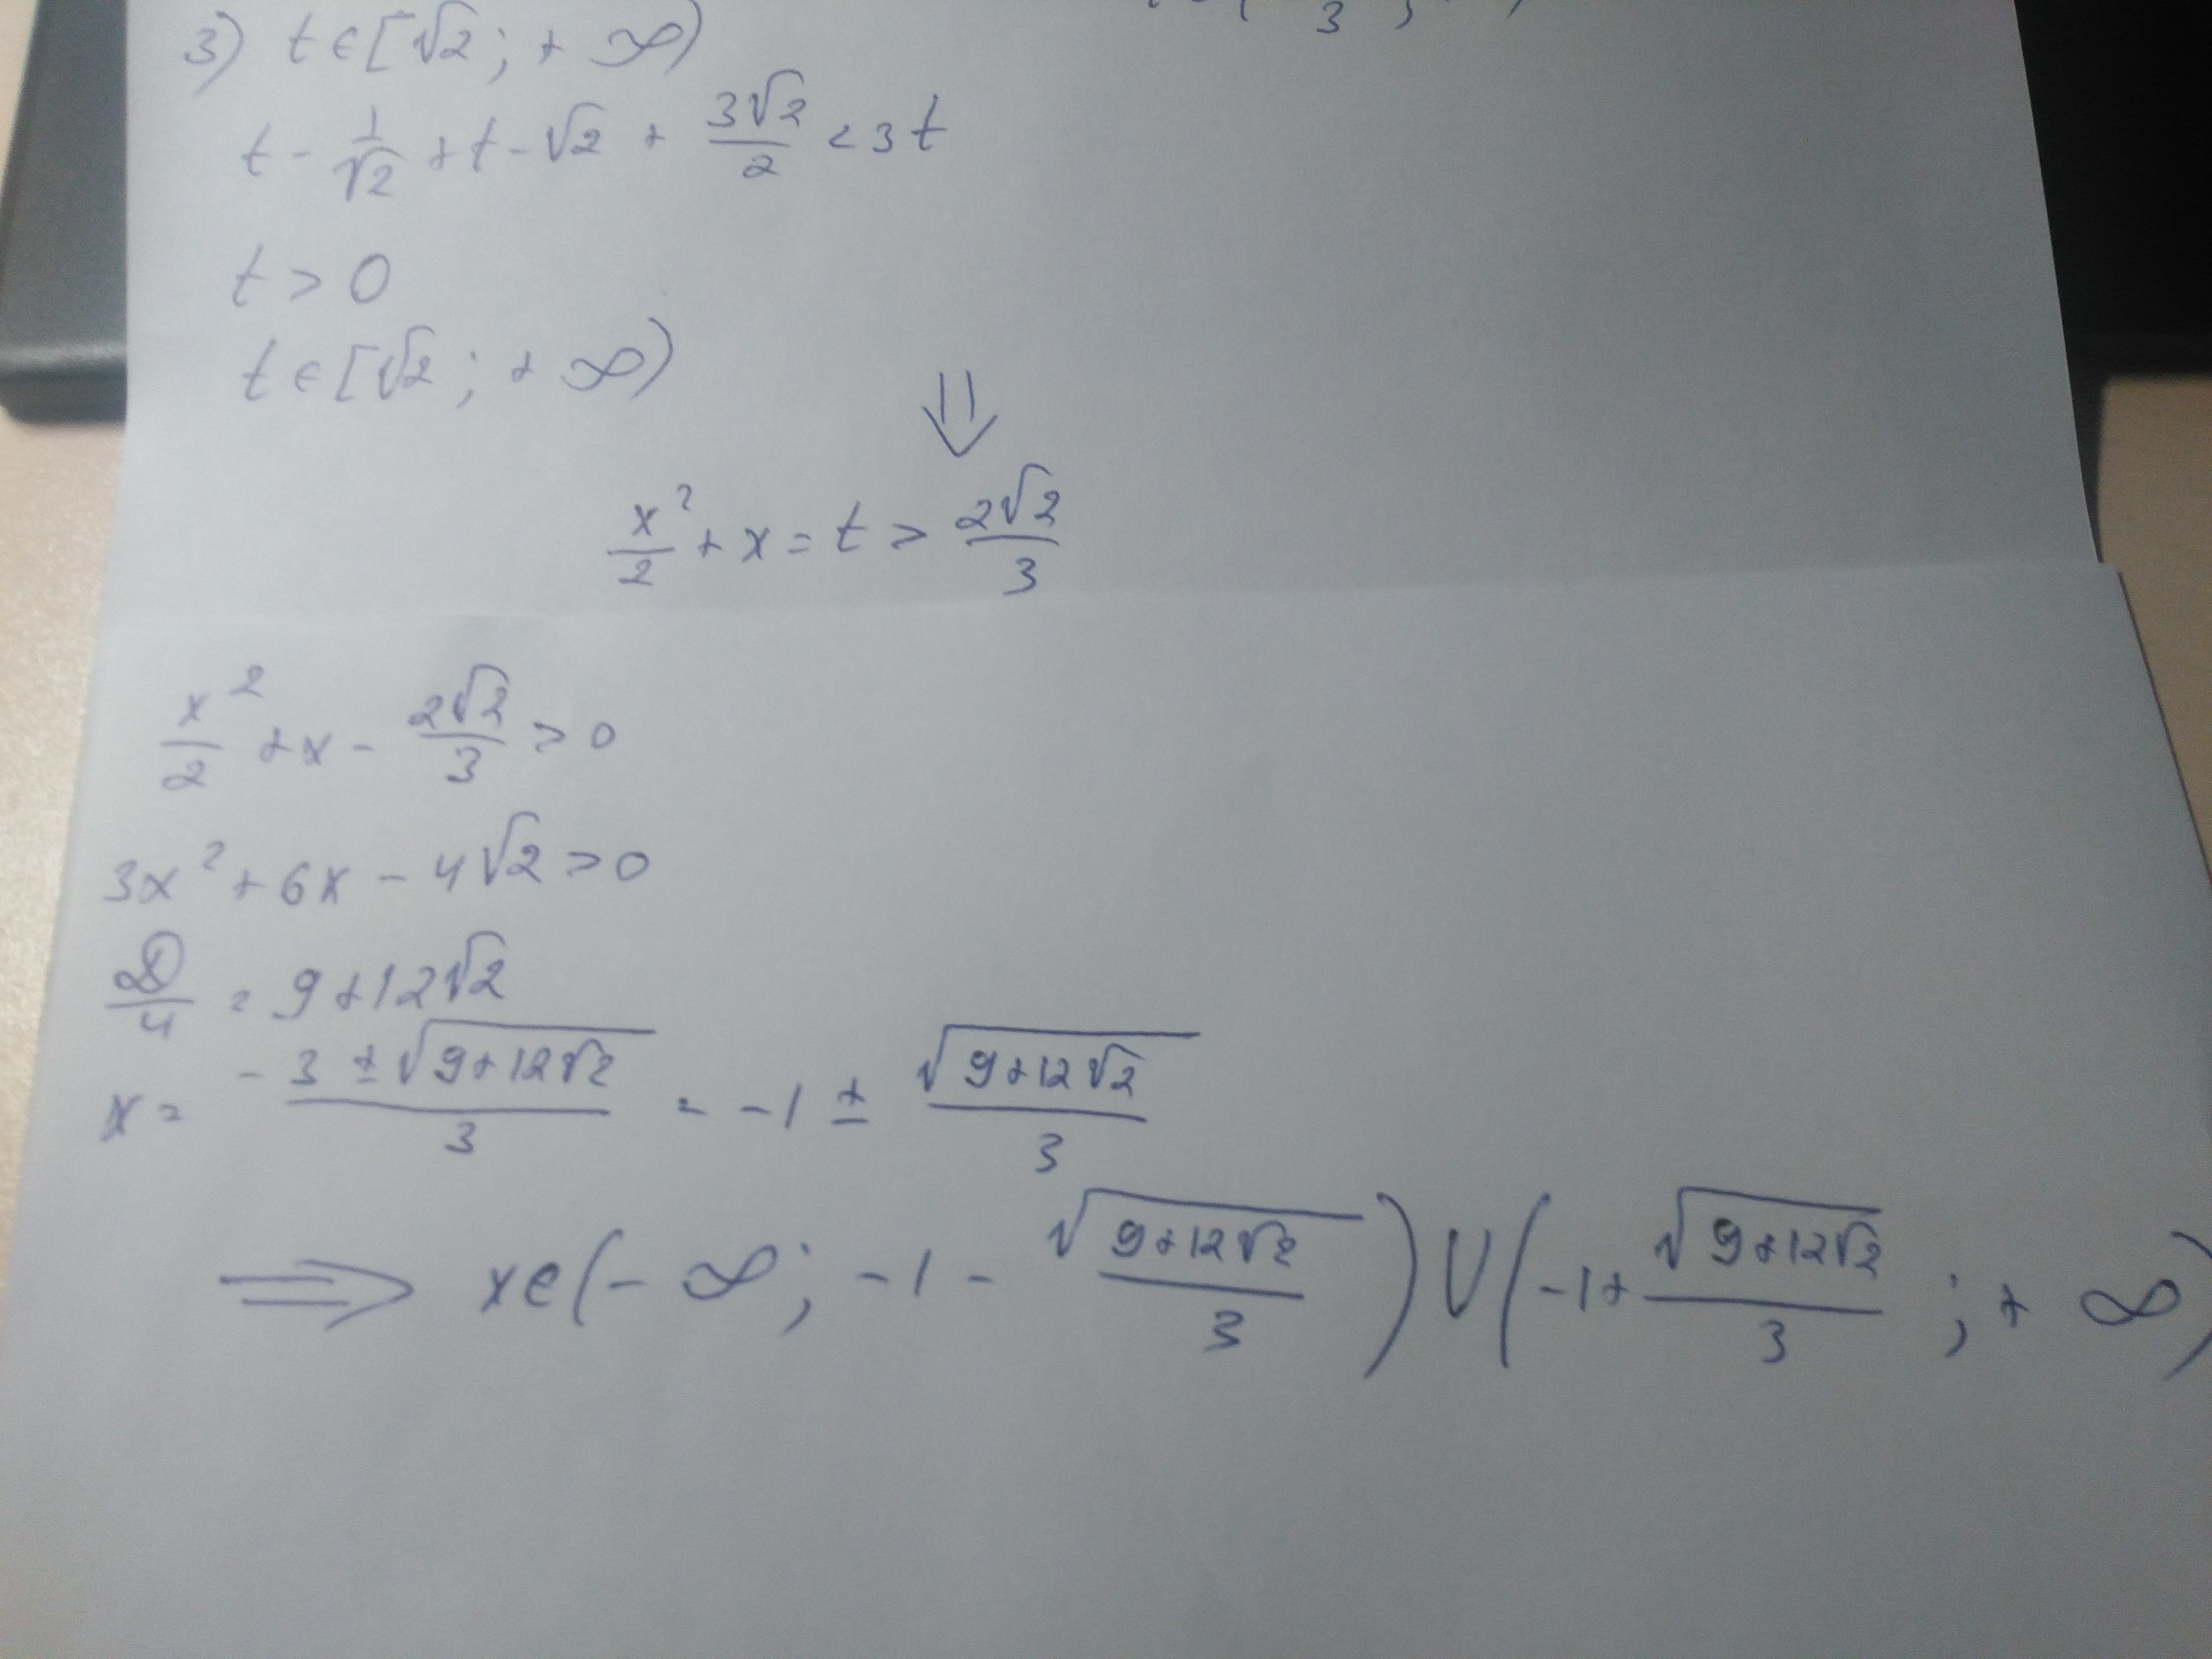 3) t ∈ [√2 ; + ∞)
t - 1/√2 + t - √2 + 3√2/2 < 3t
t > 0
t ∈ [√2 ; + ∞)
⇓
x²/2 + x = t > 2√2/3
x²/2 + x - 2√2/3 > 0
3x² + 6x - 4√2 > 0
D/4 = 9 + 12√2
x = (-3 ± √(9+12√2))/3 = -1 ± √(9+12√2)/3
⇒ x ∈ (-∞ ; -1 - √(9+12√2)/3) ∪ (-1 + √(9+12√2)/3 ; + ∞)